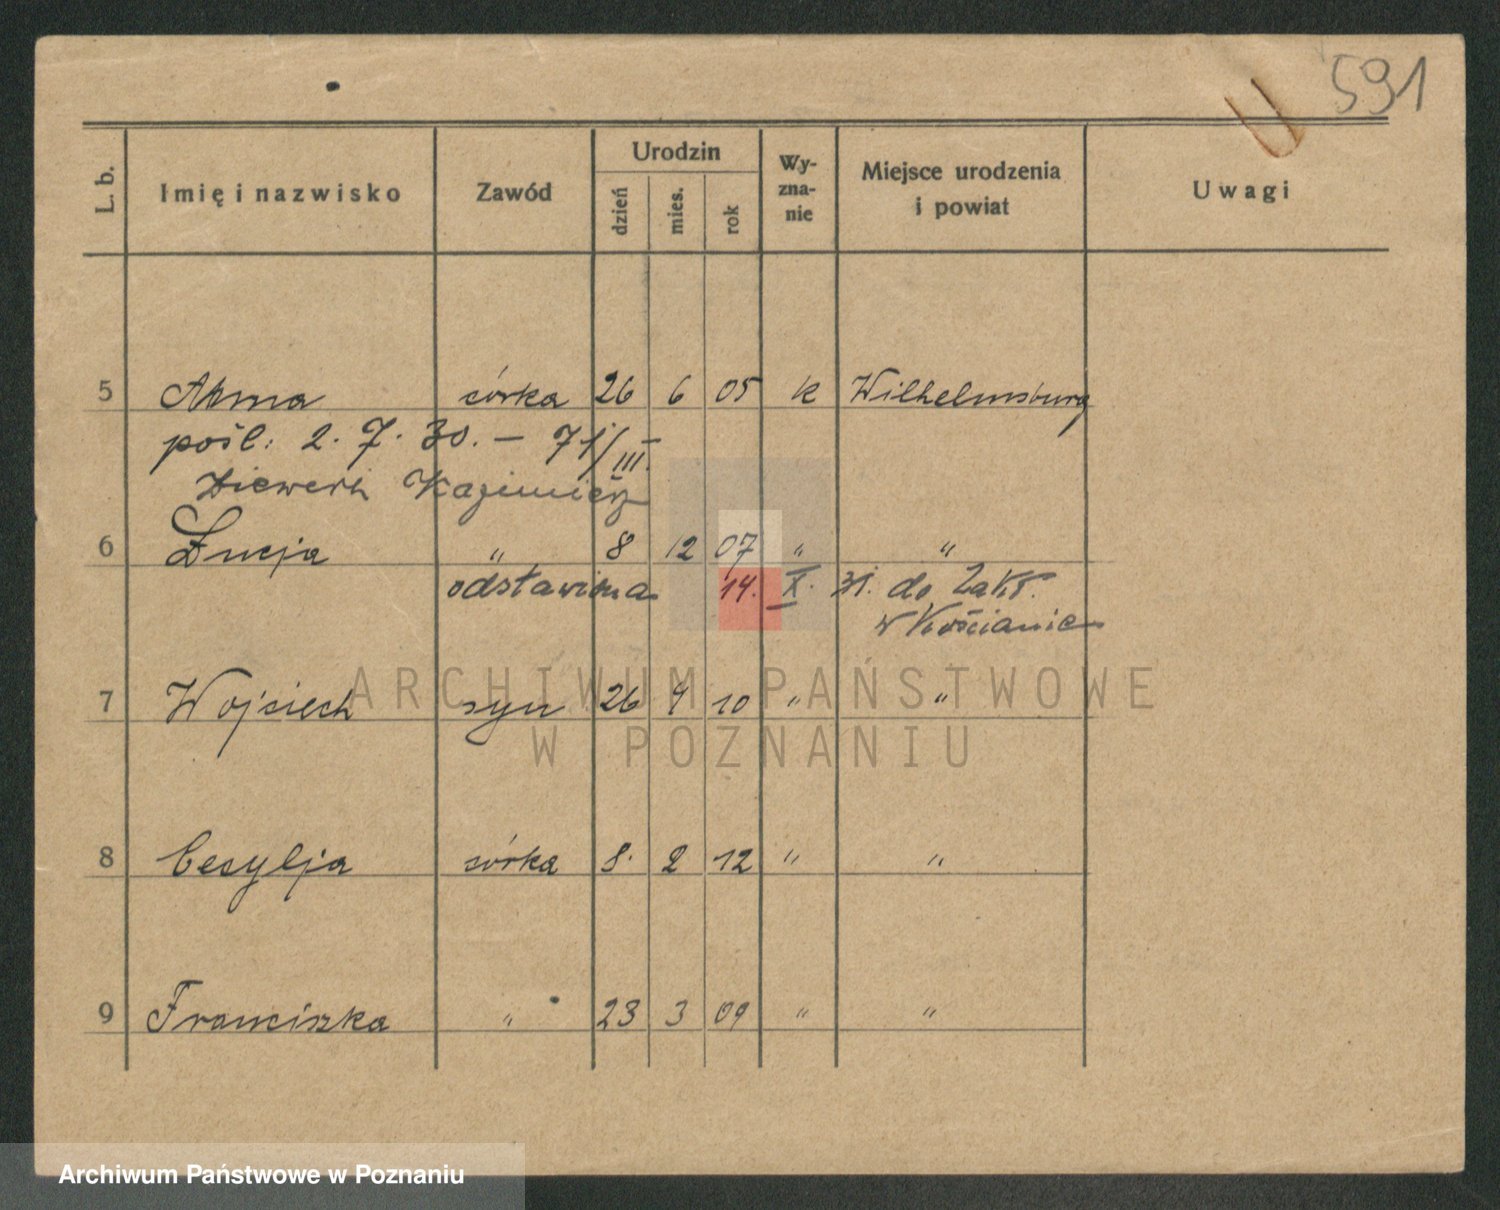 591
U
L. b.
Imię i nazwisko
Zawód
Urodzin
dzień
mies.
rok
Wy-
zna-
nie
Miejsce urodzenia
i powiat
Uwagi
5 Anna córka 26 6 05 k Wilhelmsburg
pośl: 2. 7. 30. – 71/III.
Kazimierz
6 Łucja " 8 12 07 " "
odstawiona 14. X. 31. do Zakł.
w Kościanie
7 Wojciech syn 26 4 10 " "
8 Cesylja córka 8. 2 12 " "
9 Franciszka " 23 3 09 " "
ARCHIWUM PAŃSTWOWE
W POZNANIU
Archiwum Państwowe w Poznaniu